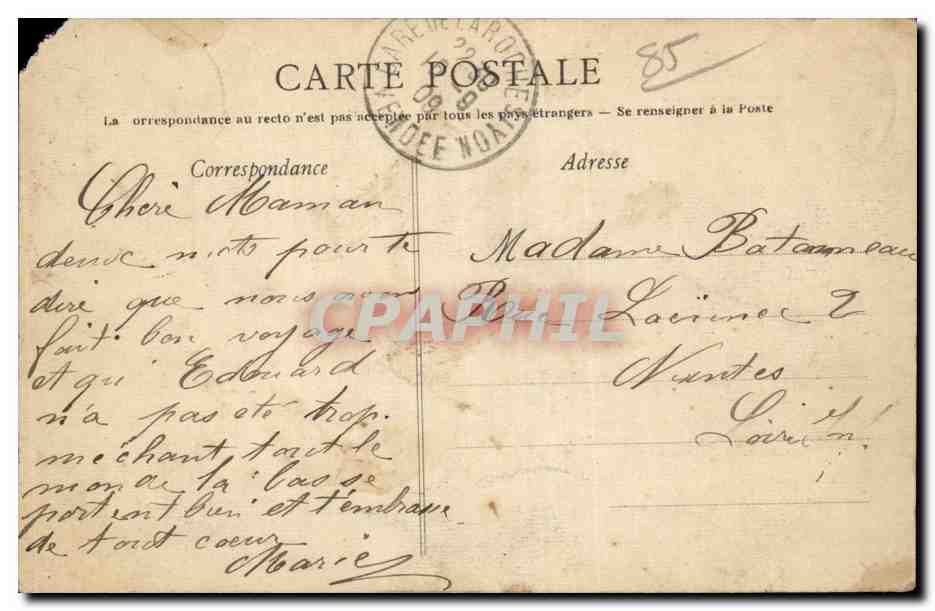 85
CARTE POSTALE
La orrespondance au recto n'est pas acceptée par tous les pays étrangers — Se renseigner à la Poste
Correspondance
Chère Maman
deux mots pour te
dire que nous avons
fait bon voyage
et qu' Edouard
n'a pas été trop
méchant tout le
monde là bas se
portent bien et t'embrasse
de tout coeur
Marie
Adresse
Madame
Rue Laënnec 2
Nantes
Loire
CPAPHIL
VENDEE
09